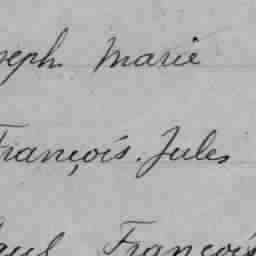 seph Marie
François Jules
Paul François